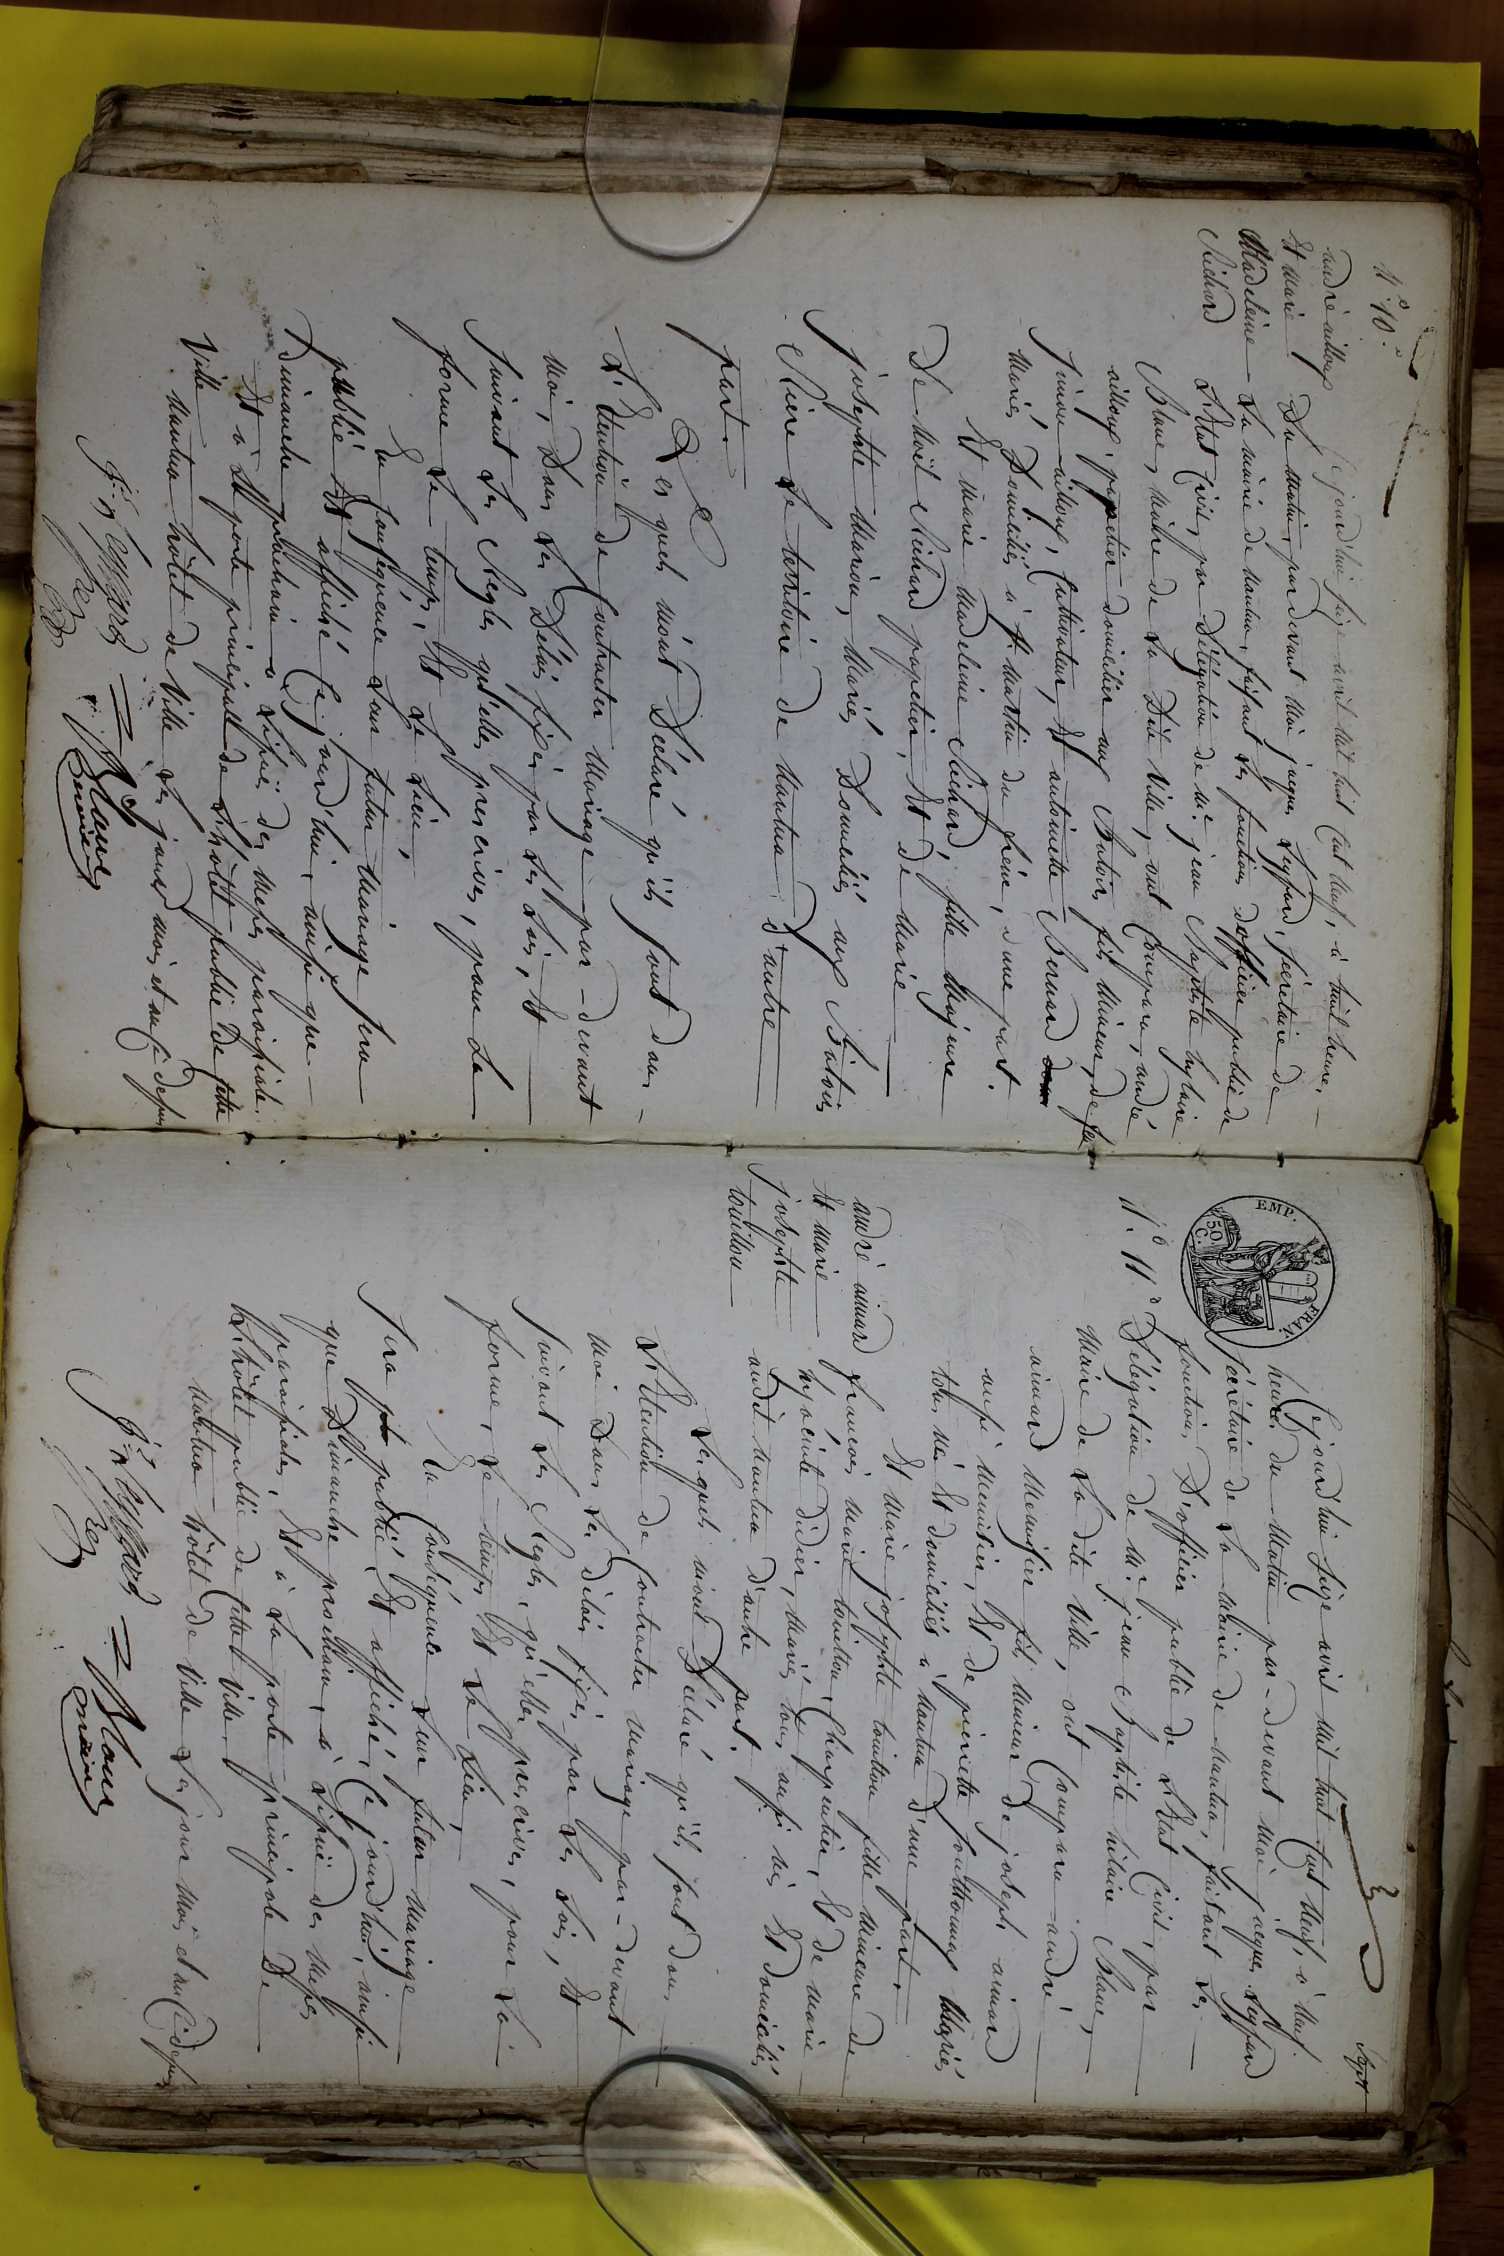 N.° 10.
andré ailloux
Et Marie
Madeleine
Richard
Cejourd'hui seize avril mil huit Cent Neuf, à huit heures
Du Matin, pardevant Moi jacques Seyssard, secrétaire de
La mairie de Mantua, faisant les fonctions d'officier public de
L'Etat Civil, par Délégation de Mr. jean Baptiste hylaire
Blanc, Maire de La Dite Ville, ont Comparu, andré
ailloux, papetier domicilié aux Batoirs fils Mineur, de feu
Simon ailloux, Cultivateur, Et antoinette Bernard
Mariés Domiciliés à St. Martin du frêne, d'une part.
Et Marie Madeleine Richard, fille Majeure
De Noël Richard papetier, Et de Marie
josephte Marion, Mariés Domiciliés aux Batoirs
Riere Le territoire de Nantua, D'autre
part.
Lesquels m'ont Déclaré qu'ils sont dans
L'Intention de Contracter Mariage par-devant
Moi, Dans Les Délais fixés par Les Lois, Et
suivant Les Regles qu'elles prescrives, pour La
forme Le temps, Et Le Lieu.
En Conséquence Leur futur Mariage sera
publié Et affiché Cejourd'hui, ainsi que
Dimanche prochain à L'issüe des Messes paroissiale.
Et à La porte principalle de L'hôtel public De Cette
Ville
Nantua hôtel de Ville Les jours mois et an Ci dessus
Jes Seyssard
Blanc
Maire
Sept
EMP. FRAN.
50 C.
N.° 11°
andré aimard
Et Marie
josephte
touillon
Cejourd'hui seize avril Mil huit Cent Neuf, à Neuf
heures du Matin par-devant moi jacques Seyssard
sécrétaire de La Mairie de Nantua, faisant Les
fonctions D'officier public de L'Etat Civil, par
Délégation de Mr. jean Baptiste hilaire Blanc,
Maire de La dite Ville, ont Comparu andré
aimard Menuisier fils Mineur de joseph aimard
aussi Menuisier, Et de pierrette Mariés
tous nés Et domiciliés à Nantua D'une part,
Et Marie josephte touillon fille Mineure de
françois Marie touillon, Charpentier, Et de Marie
hyacinte didier, Mariés tous aussi nés Et domiciliés
audit Nantua D'autre part.
Lesquels m'ont Déclaré qu'ils sont dans
L'Intention de Contracter Mariage par-devant
Moi Dans Les délais fixés par Les Lois, Et
suivant Les Regles, qu'elles prescrives, pour La
forme, Le temps Et Le Lieu,
En Conséquence Leur futur Mariage
sera publié Et affiché, Cejourd'hui, ainsi
que Dimanche prochain, à L'issüe des Messes
paroissiales, Et à La porte principale De
L'hôtel public de Cette Ville.
Nantua hôtel de Ville Les jour mois et an Ci dessus
Jes Seyssard
Blanc
Maire